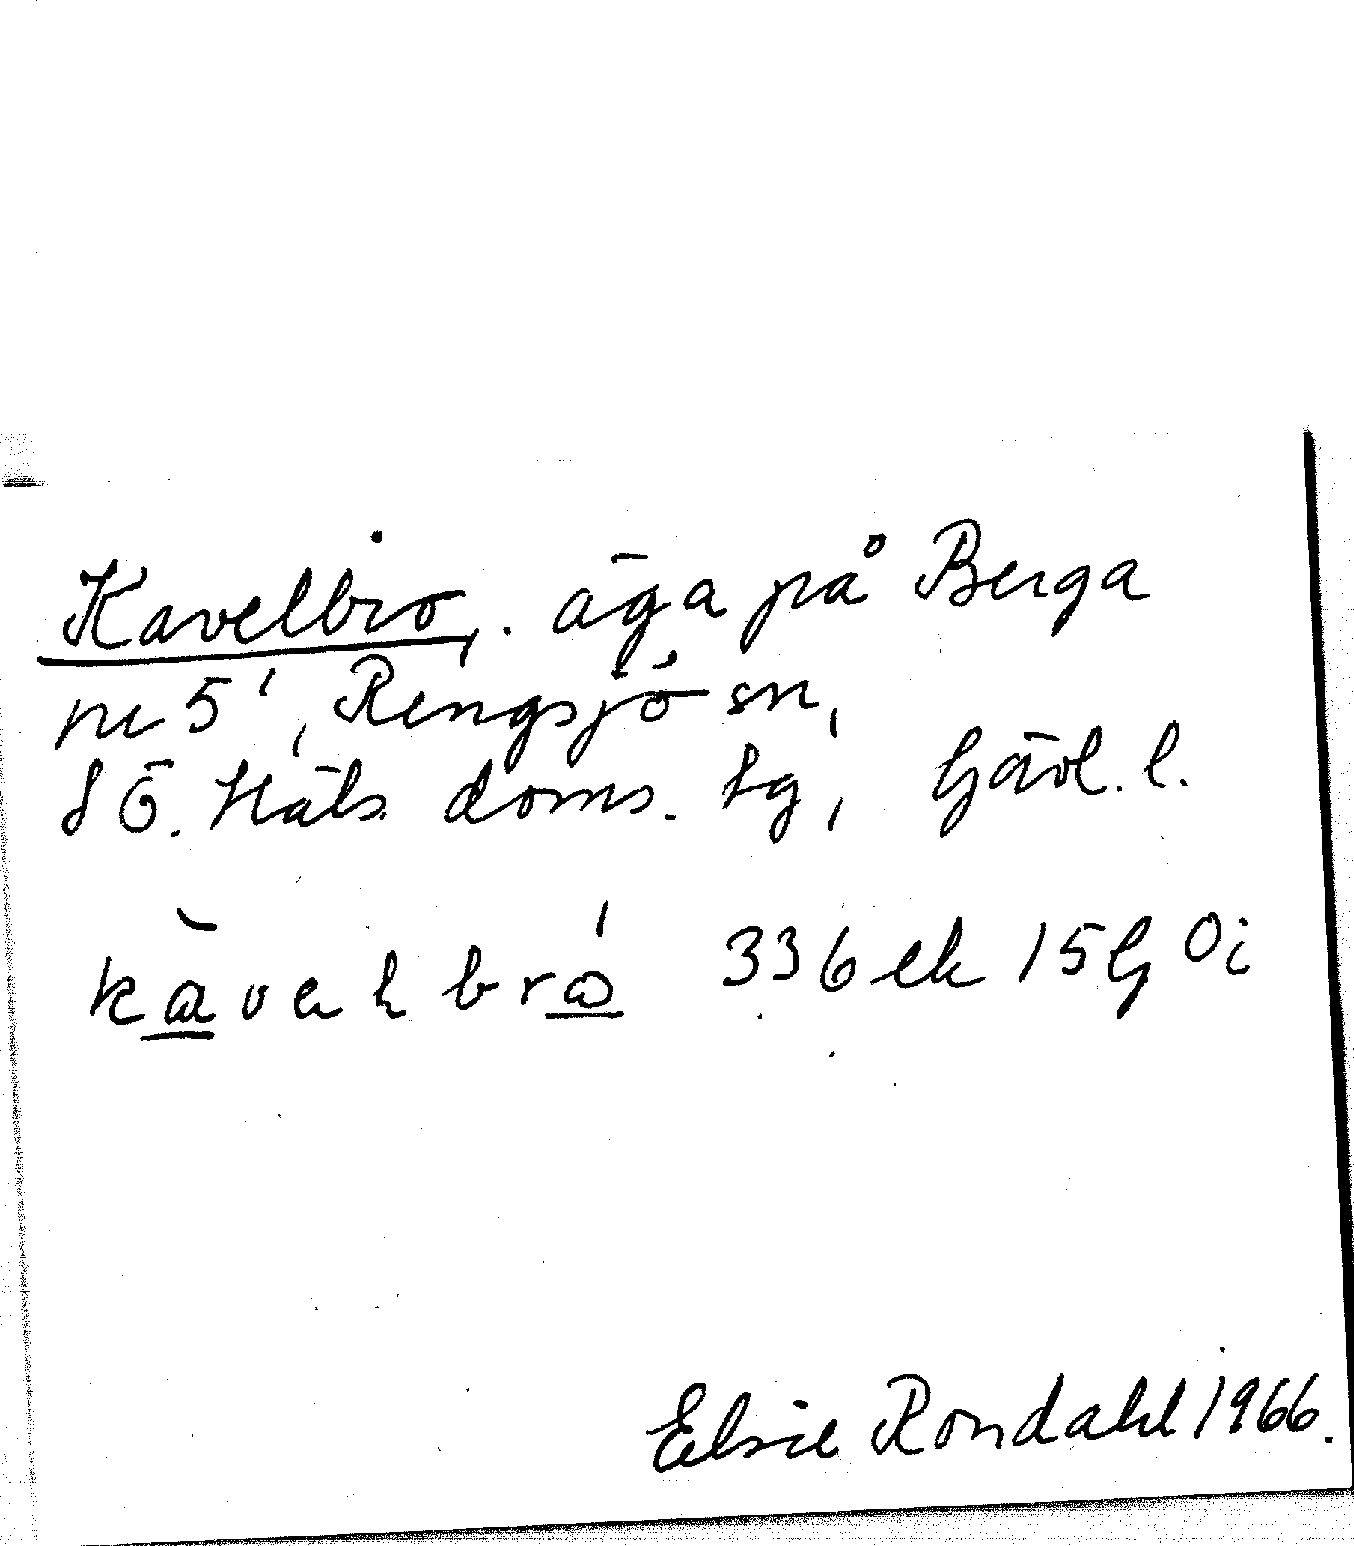 Kavelbro, äga på Berga
nr 5¹, Rengsjö sn,
S Ö. Häls. doms. tg, Gävl. l.
kàvelbró 336 ek 15G Oi
Elsie Rondahl 1966.